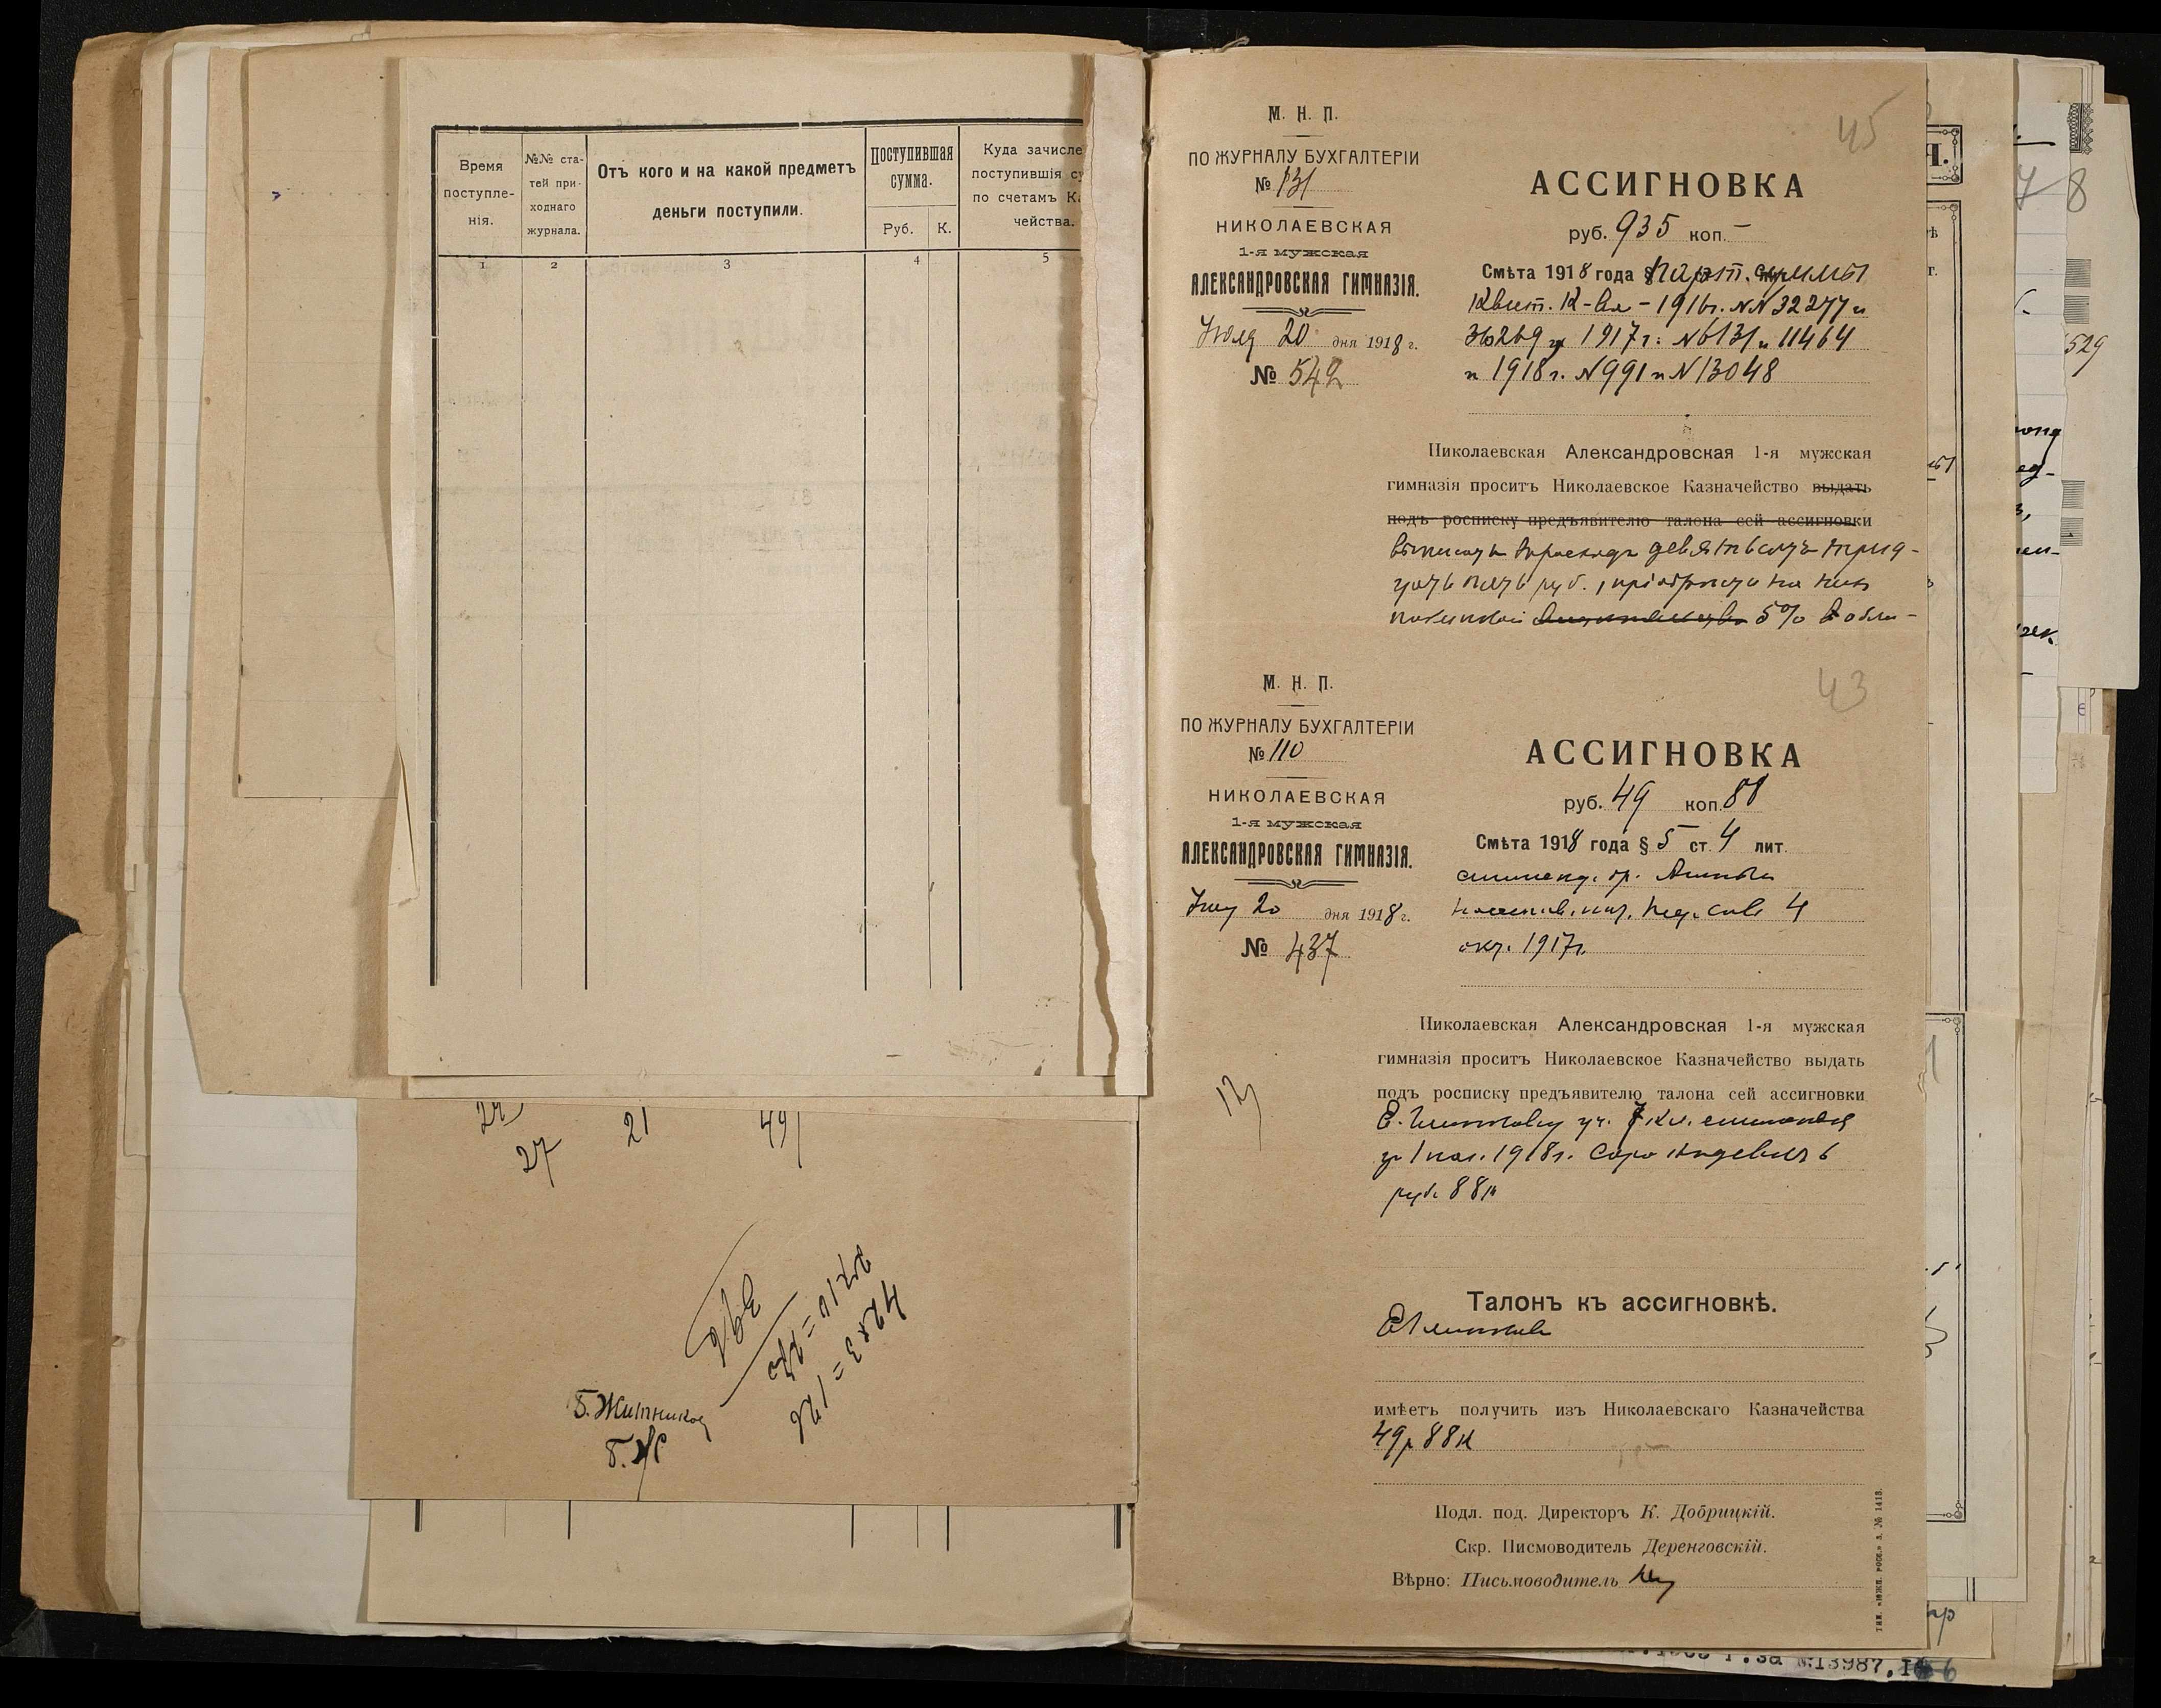 Время поступле-нія.
№№ ста-тей при-ходнаго журнала.
Отъ кого и на какой предметъ деньги поступили.
Поступившая сумма.
Руб. К.
Куда зачисле
поступившія су
по счетамъ К
чейства.
1 2 3 4 5
27 21 491
Б. Житников
Б. Ж
42x3=126
М. Н. П.
ПО ЖУРНАЛУ БУХГАЛТЕРІИ
№ 131
НИКОЛАЕВСКАЯ
1-я мужская
АЛЕКСАНДРОВСКАЯ ГИМНАЗІЯ.
Іюля 20 дня 1918 г.
№ 542
45
АССИГНОВКА
руб. 935 коп. –
Смѣта 1918 года § Парт. суммы
Квит. К-ва – 1916г. NN 32277 и
36269 и 1917г: N6131 и 11464
и 1918г. N991 и N13048
Николаевская Александровская 1-я мужская
гимназія проситъ Николаевское Казначейство выдать
подъ росписку предъявителю талона сей ассигновки
выписать въ расходъ девятьсотъ трид-
цать пять руб., пріобрѣсти на нихъ
5% обли-
М. Н. П.
ПО ЖУРНАЛУ БУХГАЛТЕРІИ
№ 110
НИКОЛАЕВСКАЯ
1-я мужская
АЛЕКСАНДРОВСКАЯ ГИМНАЗІЯ.
20 дня 1918 г.
№ 437
43
АССИГНОВКА
руб. 49 коп. 88
Смѣта 1918 года § 5 ст. 4 лит.
стипенд. гр.
4
окт. 1917г.
Николаевская Александровская 1-я мужская
гимназія проситъ Николаевское Казначейство выдать
подъ росписку предъявителю талона сей ассигновки
уч. 7 кл. стипендія
за 1 пол. 1918г. Сорокъ девять
руб. 88 к
13
Талонъ къ ассигновкѣ.
имѣетъ получить изъ Николаевскаго Казначейства
49р 88к
Подл. под. Директоръ К. Добрицкій.
Скр. Писмоводитель Деренговскій.
Вѣрно: Письмоводитель
8
529
№13987.